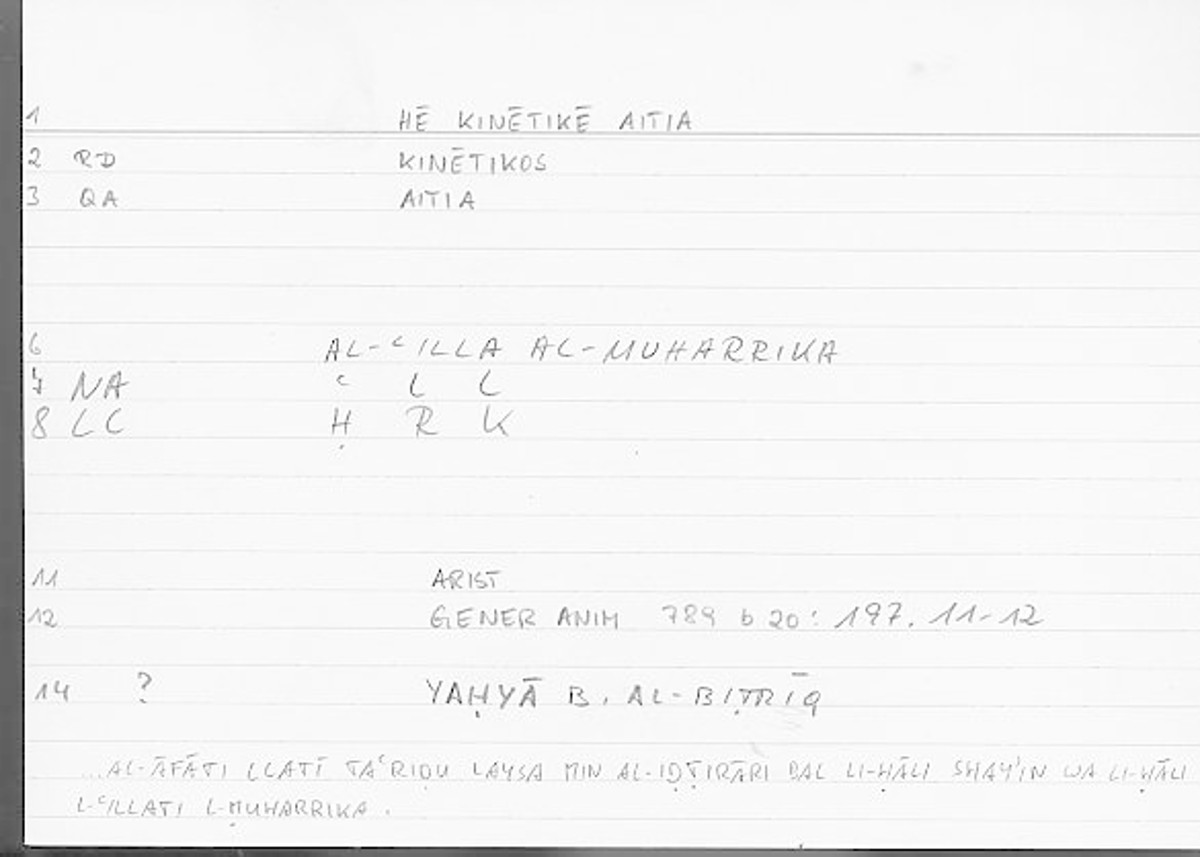 1 HĒ KINĒTIKĒ AITIA
2 RD KINĒTIKOS
3 QA AITIA
6 AL-ʿILLA AL-MUHARRIKA
7 NA ʿ L L
8 LC Ḥ R K
11 ARIST
12 GENER ANIM 789 b 20: 197. 11-12
14 ? YAḤYĀ B. AL-BIṬRĪQ
...AL-ĀFĀTI LLATĪ TAʿRIḌU LAYSA MIN AL-IḌṬIRĀRI BAL LI-ḤĀLI SHAY'IN WA LI-ḤĀLI
L-ʿILLATI L-MUḤARRIKA.